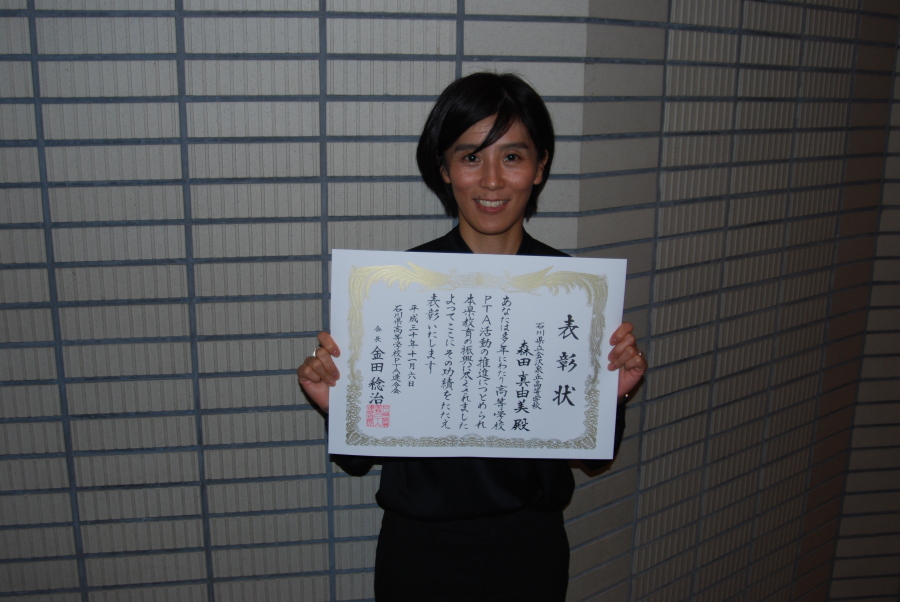 表彰状
石川県立金沢泉丘高等学校
森田 真由美 殿
あなたは多年にわたり高等学校
PTA活動の推進につとめられ
本県教育の振興に尽くされました
よってここにその功績をたたえ
表彰いたします
平成三十年十一月六日
石川県高等学校PTA連合会
会長 金田 稔治